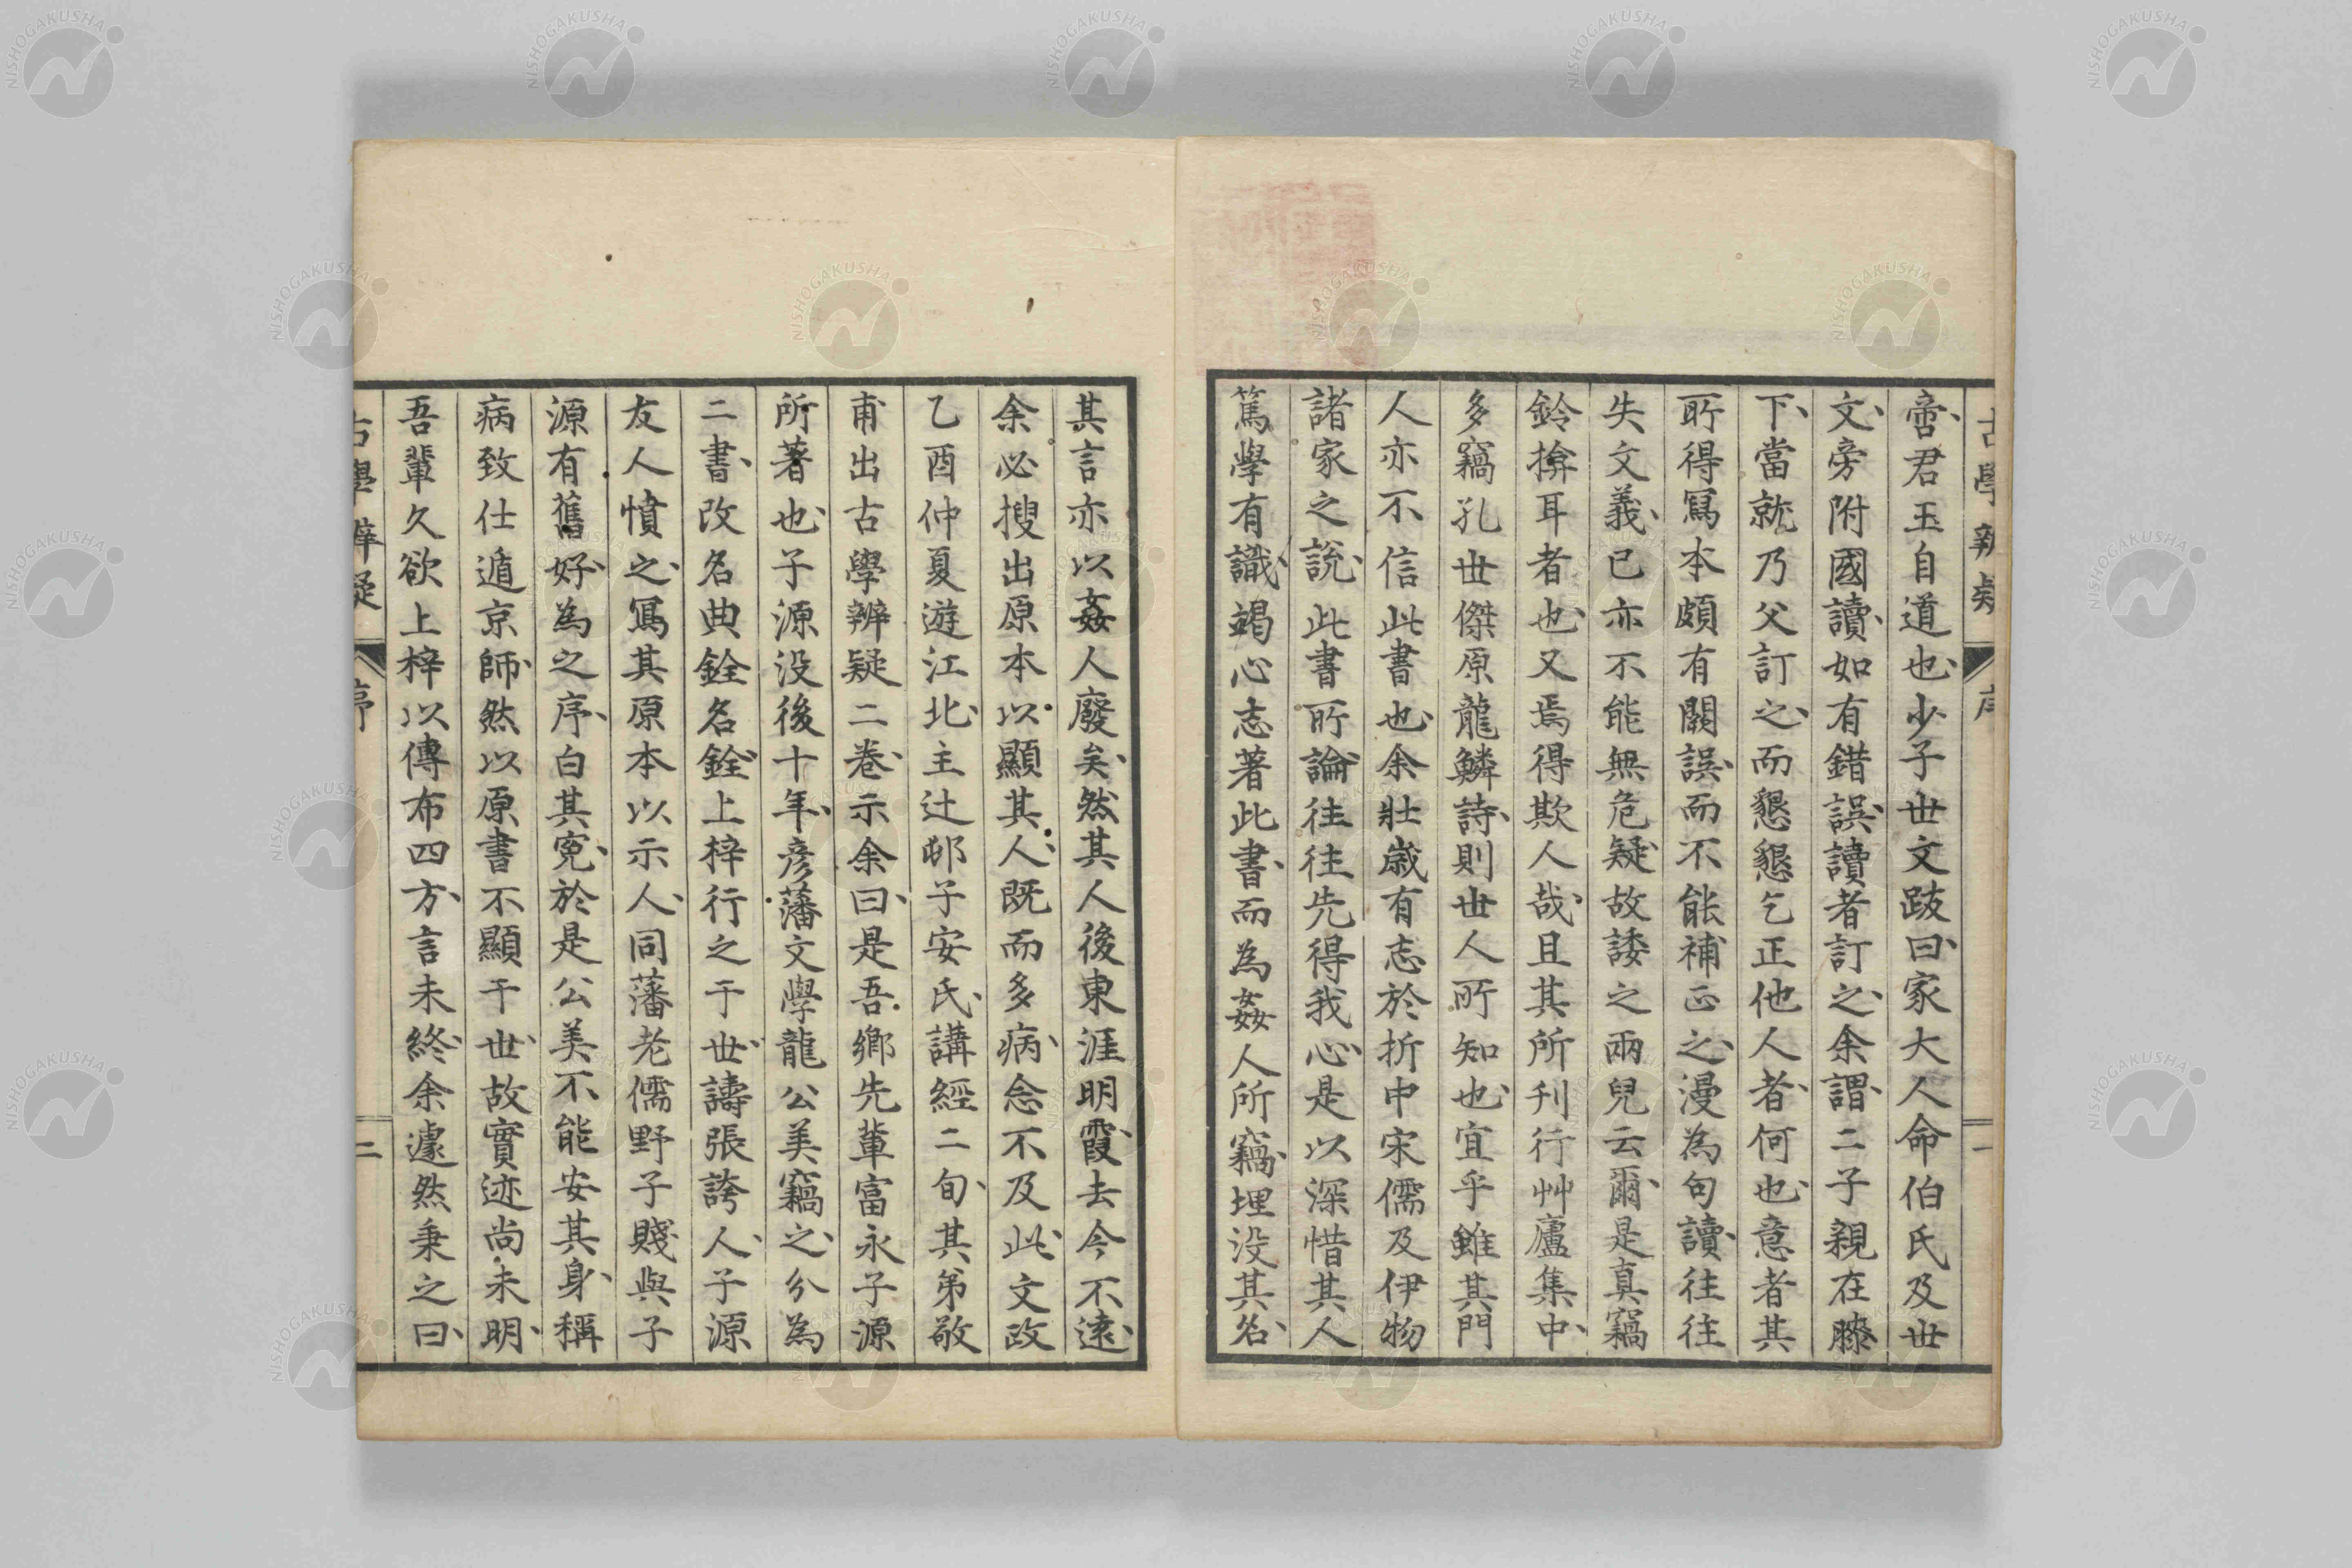 啻君玉自道也、少子世文跋曰、家大人命伯氏及世
文、旁附國讀、如有錯誤、讀者訂之、余謂、二子親在膝
下、當就乃父訂之、而懇懇乞正他人者、何也、意者其
所得寫本頗有闕誤、而不能補正之、漫為句讀、往往
失文義、已亦不能無危疑、故諉之兩兒云爾、是真竊
鈴揜耳者也、又焉得欺人哉、且其所刊行艸廬集中、
多竊孔世傑原龍鱗詩、則世人所知也、宜乎雖其門
人亦不信此書也、余壯歲有志於折中宋儒及伊物
諸家之說、此書所論、往往先得我心、是以深惜其人
篤學有識、竭心志著此書、而為姦人所竊、埋没其名、
其言亦以姦人廢矣、然其人後東涯明霞、去今不遠、
余必搜出原本以顯其人、既而多病、念不及此、文政
乙酉仲夏遊江北、主辻邨子安氏、講經二旬、其弟敬
甫出古學辨疑二卷、示余曰、是吾鄉先輩富永子源
所著也、子源没後十年、彦藩文學龍公美竊之、分為
二書、改名典銓名銓、上梓行之于世、譸張誇人、子源
友人憤之、寫其原本以示人、同藩老儒野子賤與子
源有舊好、為之序、白其冤、於是公美不能安其身、稱
病致仕遁京師、然以原書不顯于世、故實迹尚未明、
吾輩久欲上梓以傳布四方、言未終、余遽然秉之曰、
古學辨疑
序
一
古學辨疑
序
二
NISHOGAKUSHA